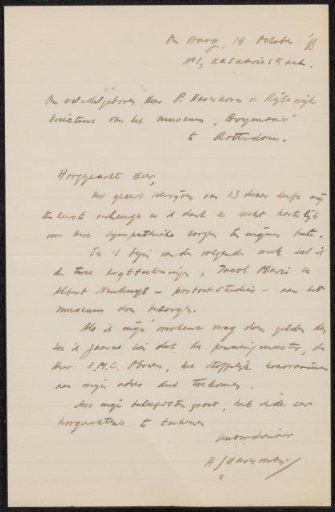 Den Haag, 14 October '98
No 1, Kasuariestraat.
Den weledelgeboren Heer P. Haverkorn v. Rijsewijk
directeur van het museum "Boymans"
te Rotterdam.
Hooggeachte Heer,
Uw geëerd schrijven van 13 dezer
ten zeerste en ik dank u recht hartelijk
voor uwe sympathieke zorgen te mijnen bate.
In 't begin van de volgende week zal ik
de twee krijtteekeningen, Jacob Maris en
Albert Neuhuys – portretstudies – aan het
museum doen bezorgen.
Als ik mijn voorkeur mag doen gelden dan
zou ik gaarne zien dat de penningmeester, de
Heer honorarium
aan mijn adres doet toekomen.
Met mijn beleefden groet, heb ik de eer
hoogachtend te teekenen
Uw dw. dienaar
H J Haverman